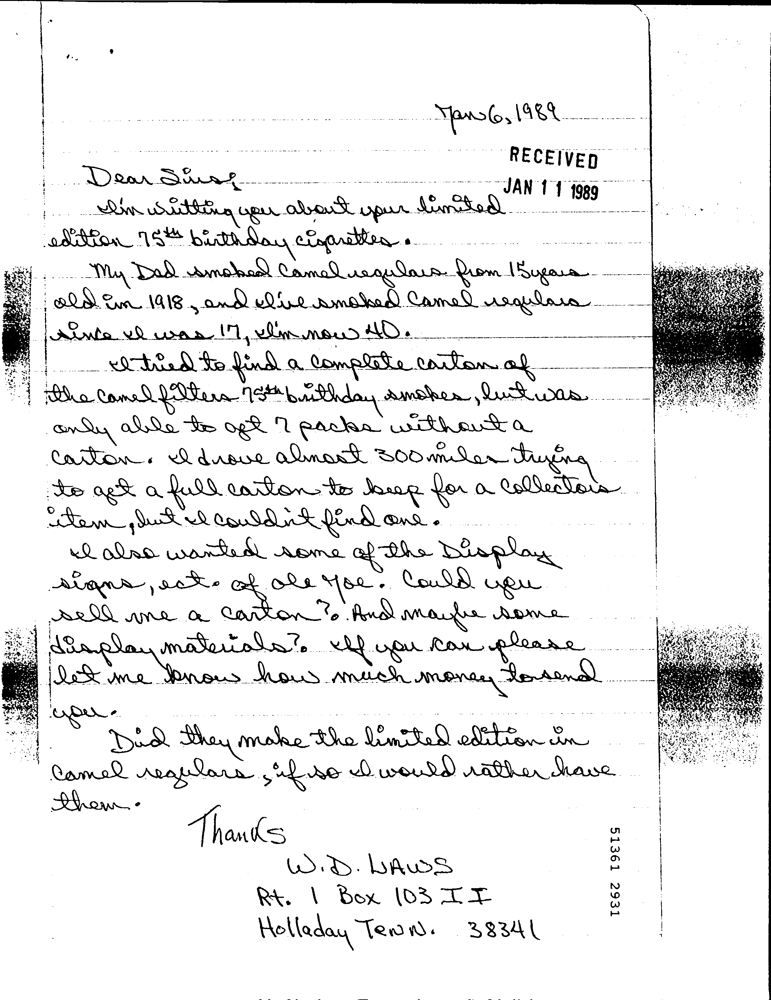 Jan 6, 1989
RECEIVED
JAN 11 1989
Dear Sirs;
I'm writting you about your limited
edition 75th birthday cigarettes.
My Dad smoked Camel regulars from 15 years
old in 1918, and I've smoked Camel regulars
since I was 17, I'm now 40.
I tried to find a complete carton of
the camel filters 75th birthday smokes, but was
only able to get 7 packs without a
carton. I drove almost 300 miles trying
to get a full carton to keep for a collectors
item, but I couldn't find one.
I also wanted some of the Display
signs, ect. of ole Joe. Could you
sell me a carton?. And maybe some
display materials?. If you can please
let me know how much money to send
you.
Did they make the limited edition in
Camel regulars, if so I would rather have
them.
Thanks
W.D. LAWS
Rt. 1 Box 103 II
Holladay Tenn. 38341
51361 2931